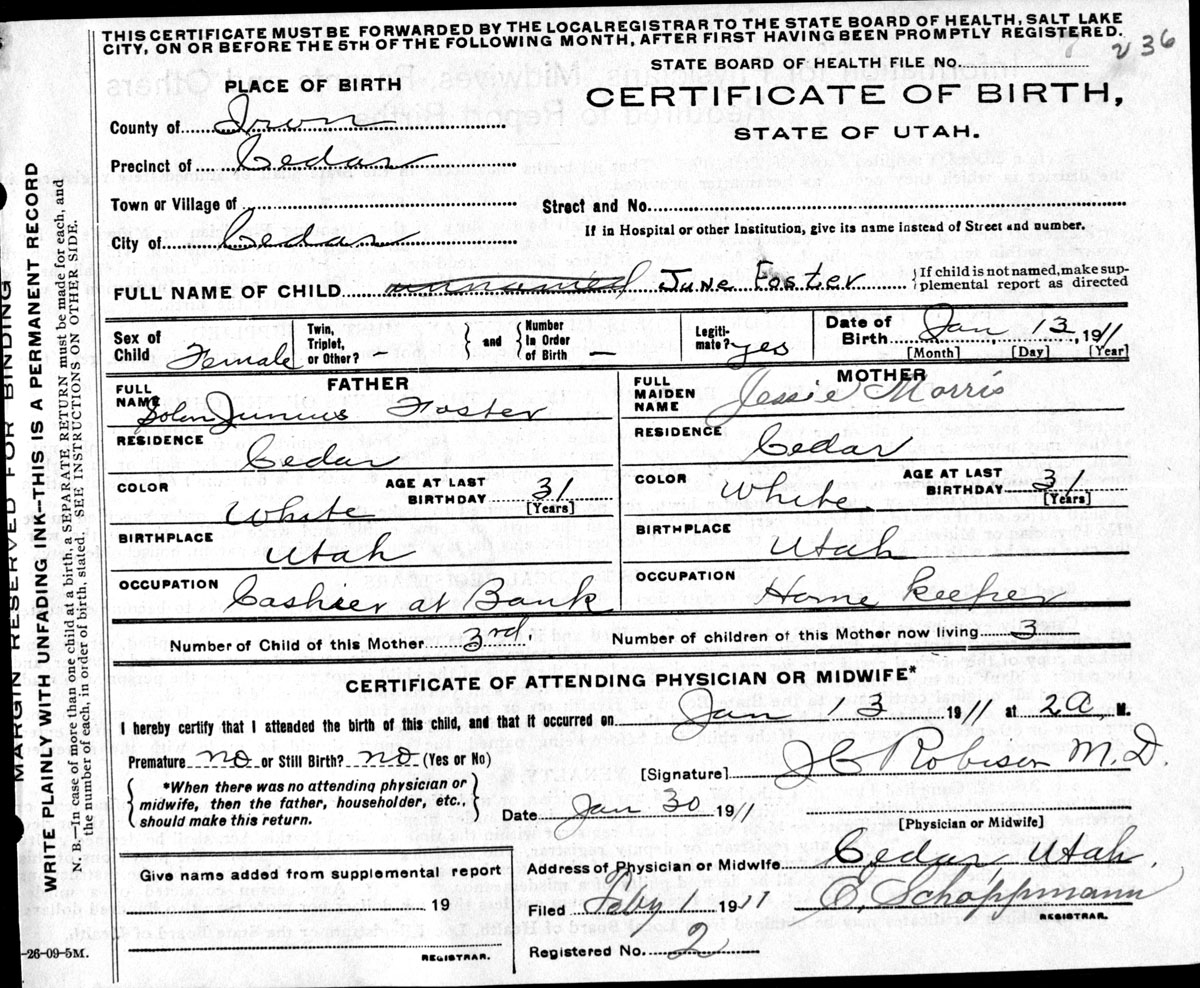 THIS CERTIFICATE MUST BE FORWARDED BY THE LOCAL REGISTRAR TO THE STATE BOARD OF HEALTH, SALT LAKE
CITY, ON OR BEFORE THE 5TH OF THE FOLLOWING MONTH, AFTER FIRST HAVING BEEN PROMPTLY REGISTERED.
236
STATE BOARD OF HEALTH FILE No.
PLACE OF BIRTH
CERTIFICATE OF BIRTH,
STATE OF UTAH.
County of Iron
Precinct of Cedar
Town or Village of
Street and No.
City of Cedar
If in Hospital or other Institution, give its name instead of Street and number.
FULL NAME OF CHILD unnamed June Foster {If child is not named, make sup-
plemental report as directed
Sex of Child Female
Twin, Triplet, or Other? -
and
Number In Order of Birth -
Legiti-mate? yes
Date of Birth Jan 13, 1911
[Month] [Day] [Year]
FATHER
FULL NAME Solon Junius Foster
RESIDENCE Cedar
COLOR White
AGE AT LAST BIRTHDAY 31
[Years]
BIRTHPLACE Utah
OCCUPATION Cashier at Bank
MOTHER
FULL MAIDEN NAME Jessie Morris
RESIDENCE Cedar
COLOR White
AGE AT LAST BIRTHDAY 31
[Years]
BIRTHPLACE Utah
OCCUPATION Home Keeper
Number of Child of this Mother 3rd Number of children of this Mother now living 3
CERTIFICATE OF ATTENDING PHYSICIAN OR MIDWIFE*
I hereby certify that I attended the birth of this child, and that it occurred on Jan 13 1911 at 2 a, M.
Premature no or Still Birth? no (Yes or No)
[Signature] J C Robison M.D.
*When there was no attending physician or
midwife, then the father, householder, etc.,
should make this return.
Date Jan 30 1911
[Physician or Midwife]
Give name added from supplemental report
19
REGISTRAR.
Address of Physician or Midwife Cedar Utah.
Filed Feby 1 1911 E. Schoppmann
REGISTRAR.
Registered No. 2
-26-09-5M.
MARGIN RESERVED FOR BINDING
WRITE PLAINLY WITH UNFADING INK—THIS IS A PERMANENT RECORD
N. B.—In case of more than one child at a birth a SEPARATE RETURN must be made for each, and
the number of each, in order of birth, stated. SEE INSTRUCTIONS ON OTHER SIDE.